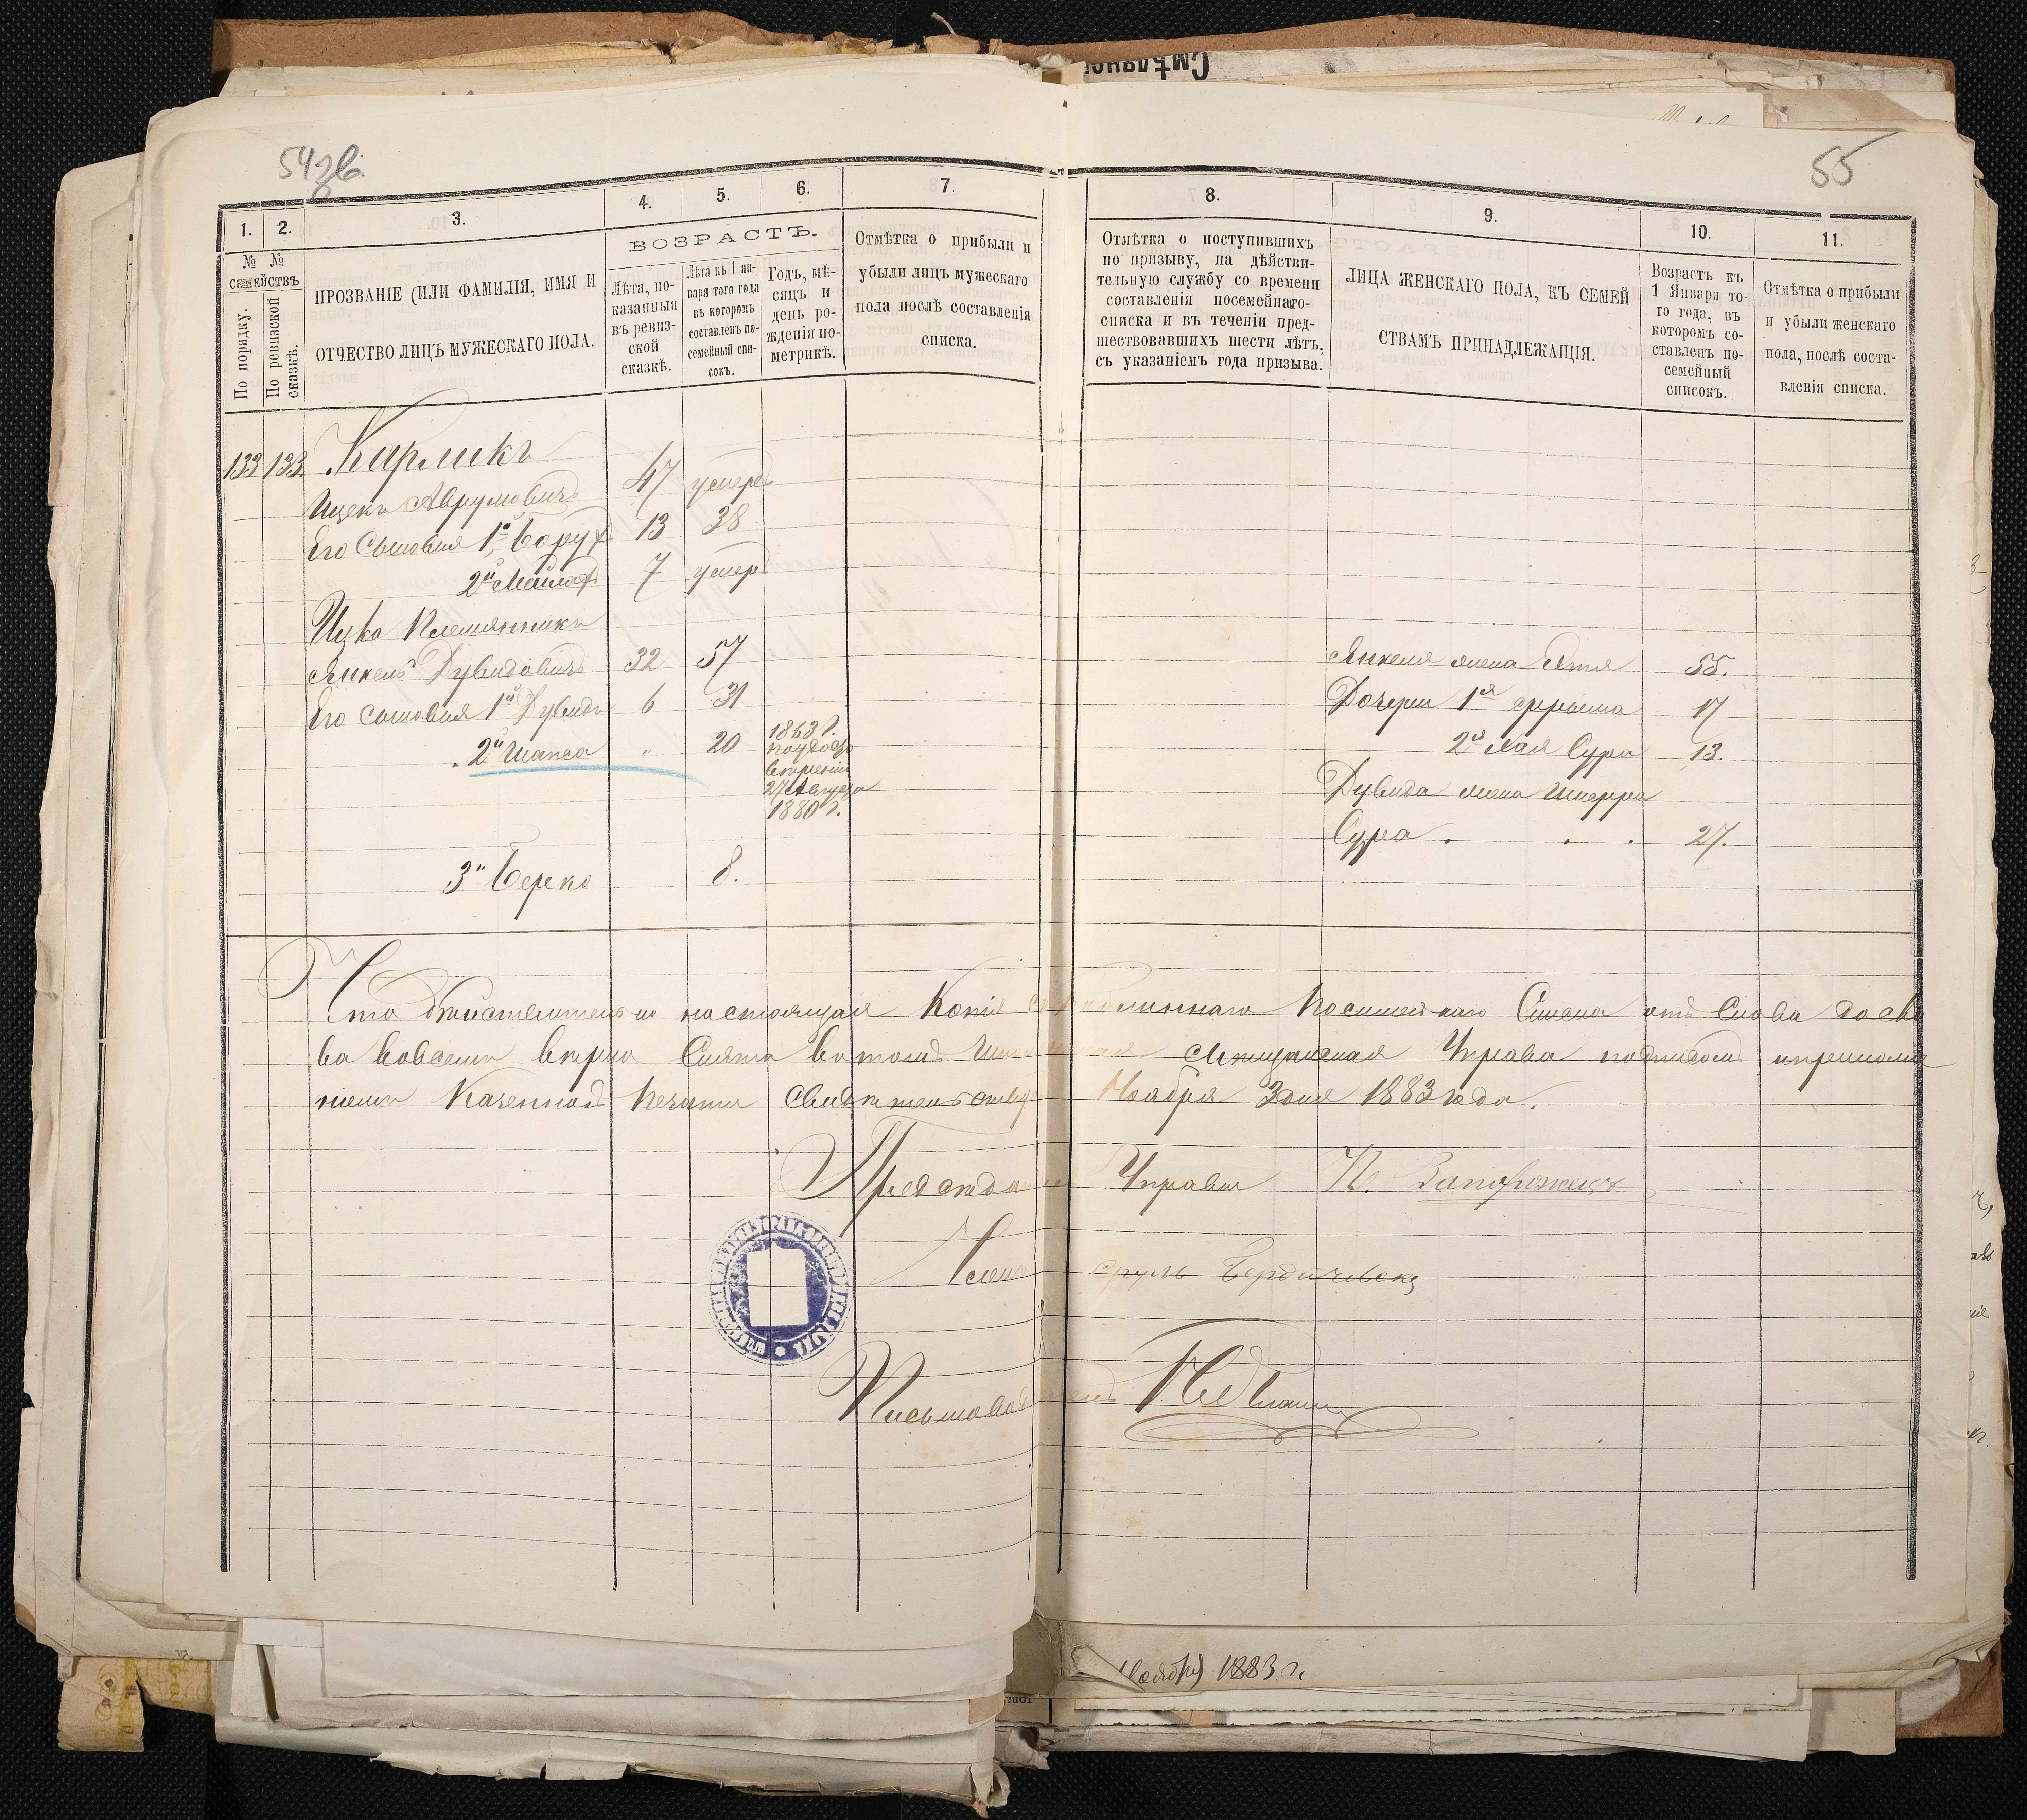 Смѣлянс
54зв.
55
1.
2.
3.
4.
5.
6.
7.
8.
9.
10.
11.
№ №
семействъ
По порядку.
По ревизской
сказкѣ.
ПРОЗВАНІЕ (ИЛИ ФАМИЛІЯ, ИМЯ И
ОТЧЕСТВО ЛИЦЪ МУЖЕСКАГО ПОЛА.
ВОЗРАСТЪ.
Лѣта, по-
казанныя
въ ревиз-
ской
сказкѣ.
Лѣта къ 1 ян-
варя того года
въ которомъ
составленъ по-
семейный спи-
сокъ.
Годъ, мѣ-
сяцъ и
день ро-
жденія по-
метрикѣ.
Отмѣтка о прибыли и
убыли лицъ мужескаго
пола послѣ составленія
списка.
Отмѣтка о поступившихъ
по призыву, на дѣйстви-
тельную службу со времени
составленія посемейнаго-
списка и въ теченіи пред-
шествовавшихъ шести лѣтъ,
съ указаніемъ года призыва.
ЛИЦА ЖЕНСКАГО ПОЛА, КЪ СЕМЕЙ
СТВАМЪ ПРИНАДЛЕЖАЩІЯ.
Возрастъ къ
1 Января то-
го года, въ
которомъ со-
ставленъ по-
семейный
списокъ.
Отмѣтка о прибыли
и убыли женскаго
пола, послѣ соста-
вленія списка.
133 133. Карликъ
Ицекъ Аврумовичъ 47 умеръ
Его Сыновья 1й Борух 13 38
2й 7 умер
Ицка Племянникъ
Янкель Дувидовичъ 32 57
Его сыновья 1й Дувидъ 6 31
2й Шапса " 20 1863 г.
27 Августа
1880 г.
3й Берко 8.
Янкеля жена Этя 55.
Дочери 1я Фрума 17
2я Хая Сура 13.
Дувида жена Шперра
Сура . . . 27.
Что дѣйствительно настоящая Копія съ подлиннаго Посимейнаго Списка отъ Слова до сло
ва вовсемъ вѣрно Снята въ томъ Мещанская Управа подписомъ иприложе
ніемъ Казенной Печати свидѣтельствуетъ Ноября 3 дня 1883 года.
Предсѣдатель Управы П. Запорожецъ
Членъ Сруль Бердичевскій
Письмоводитель
Ноября 1883 г.